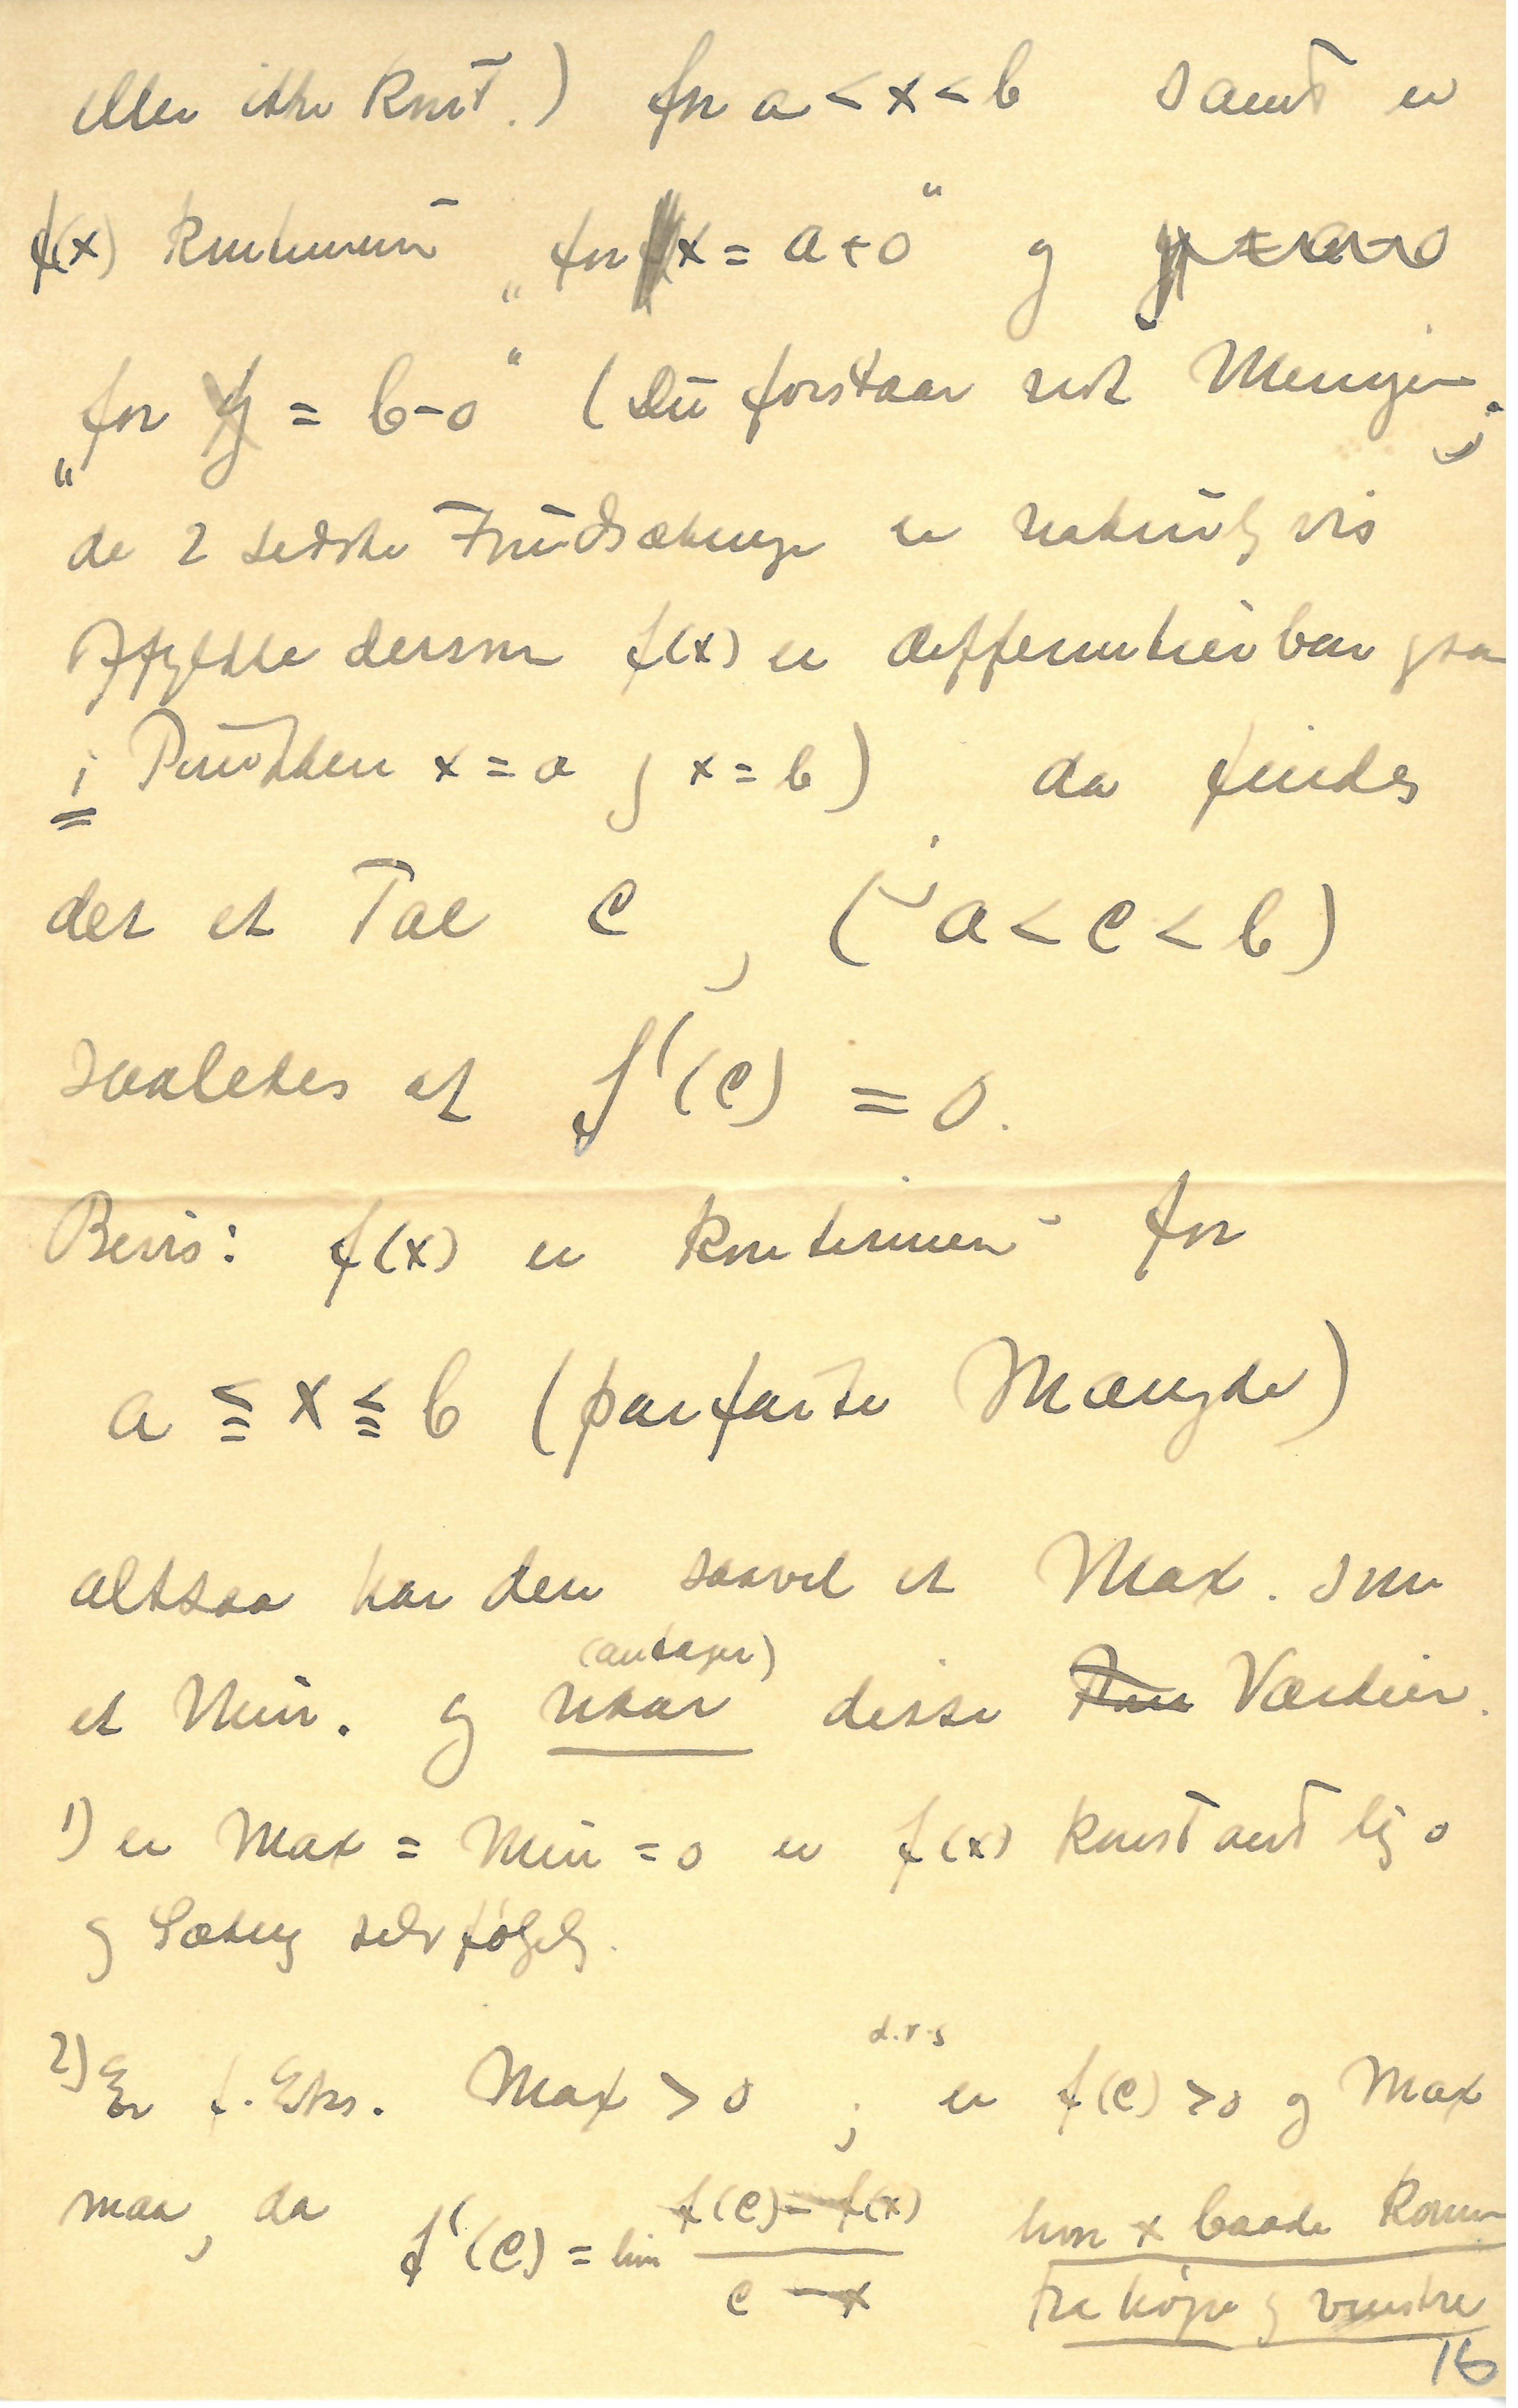 eller ikke konst.) for a < x < b samt er
f(x) kontinuert „for x = a+0" og
„for x = b-0" (Du forstaar nok Meningen;
de 2 sidste Forudsætninger er naturligvis
opfyldte dersom f(x) er differentierbar ogsaa
i Punkterne x = a og x = b) da findes
der et Tal c, (a < c < b)
saaledes at f'(c) = 0.
Bevis: f(x) er kontinuert for
a ≦ x ≦ b (perfekte Mængde)
altsaa har den saavel et Max. som
et Min. og naar (antager) disse Værdier.
1) er Max = Min = 0 er f(x) konstant lig 0
og Sætning selvfølgelig.
2) Er f. Eks. Max > 0; d.v.s er f(c) > 0 og Max
maa, da f'(c) = lim f(c) - f(x) / c - x hvor x baade kommer
fra højre og venstre
16